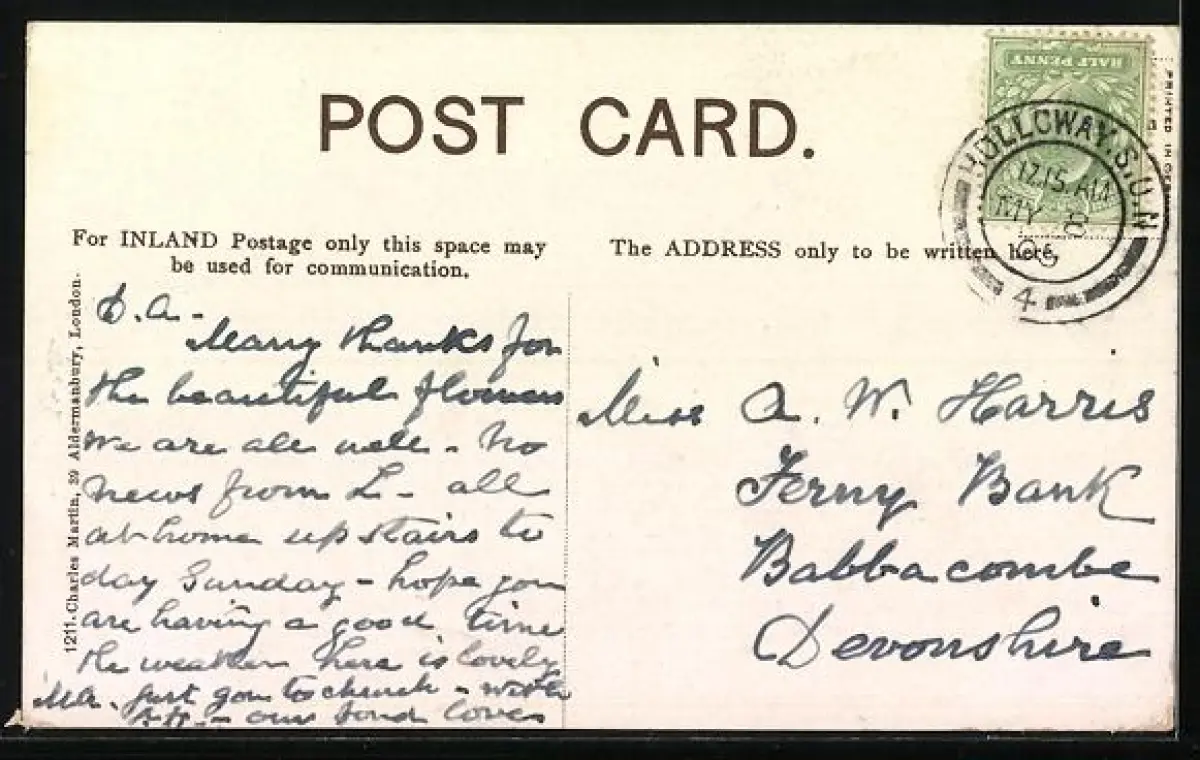 POST CARD.
HALF PENNY
PRINTED IN
HOLLOWAY. S.O. N
12.15. AM
MY 8
4
For INLAND Postage only this space may
be used for communication.
The ADDRESS only to be written here.
1211. Charles Martin, 39 Aldermanbury, London.
D. A. -
Many thanks for
the beautiful flowers
We are all well - No
news from L - all
at home upstairs to
day Sunday - hope you
are having a good time
the weather here is lovely
Ma. just gone to church - with
our fond love
Miss A. W. Harris
Ferny Bank
Babbacombe
Devonshire